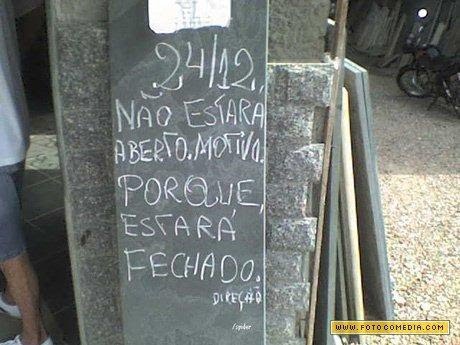 24/12,
NÃO ESTARÁ
ABERTO. MOTIVO.
PORQUE,
ESTARÁ
FECHADO.
DIREÇÃO
/spider
WWW.FOTOCOMEDIA.COM